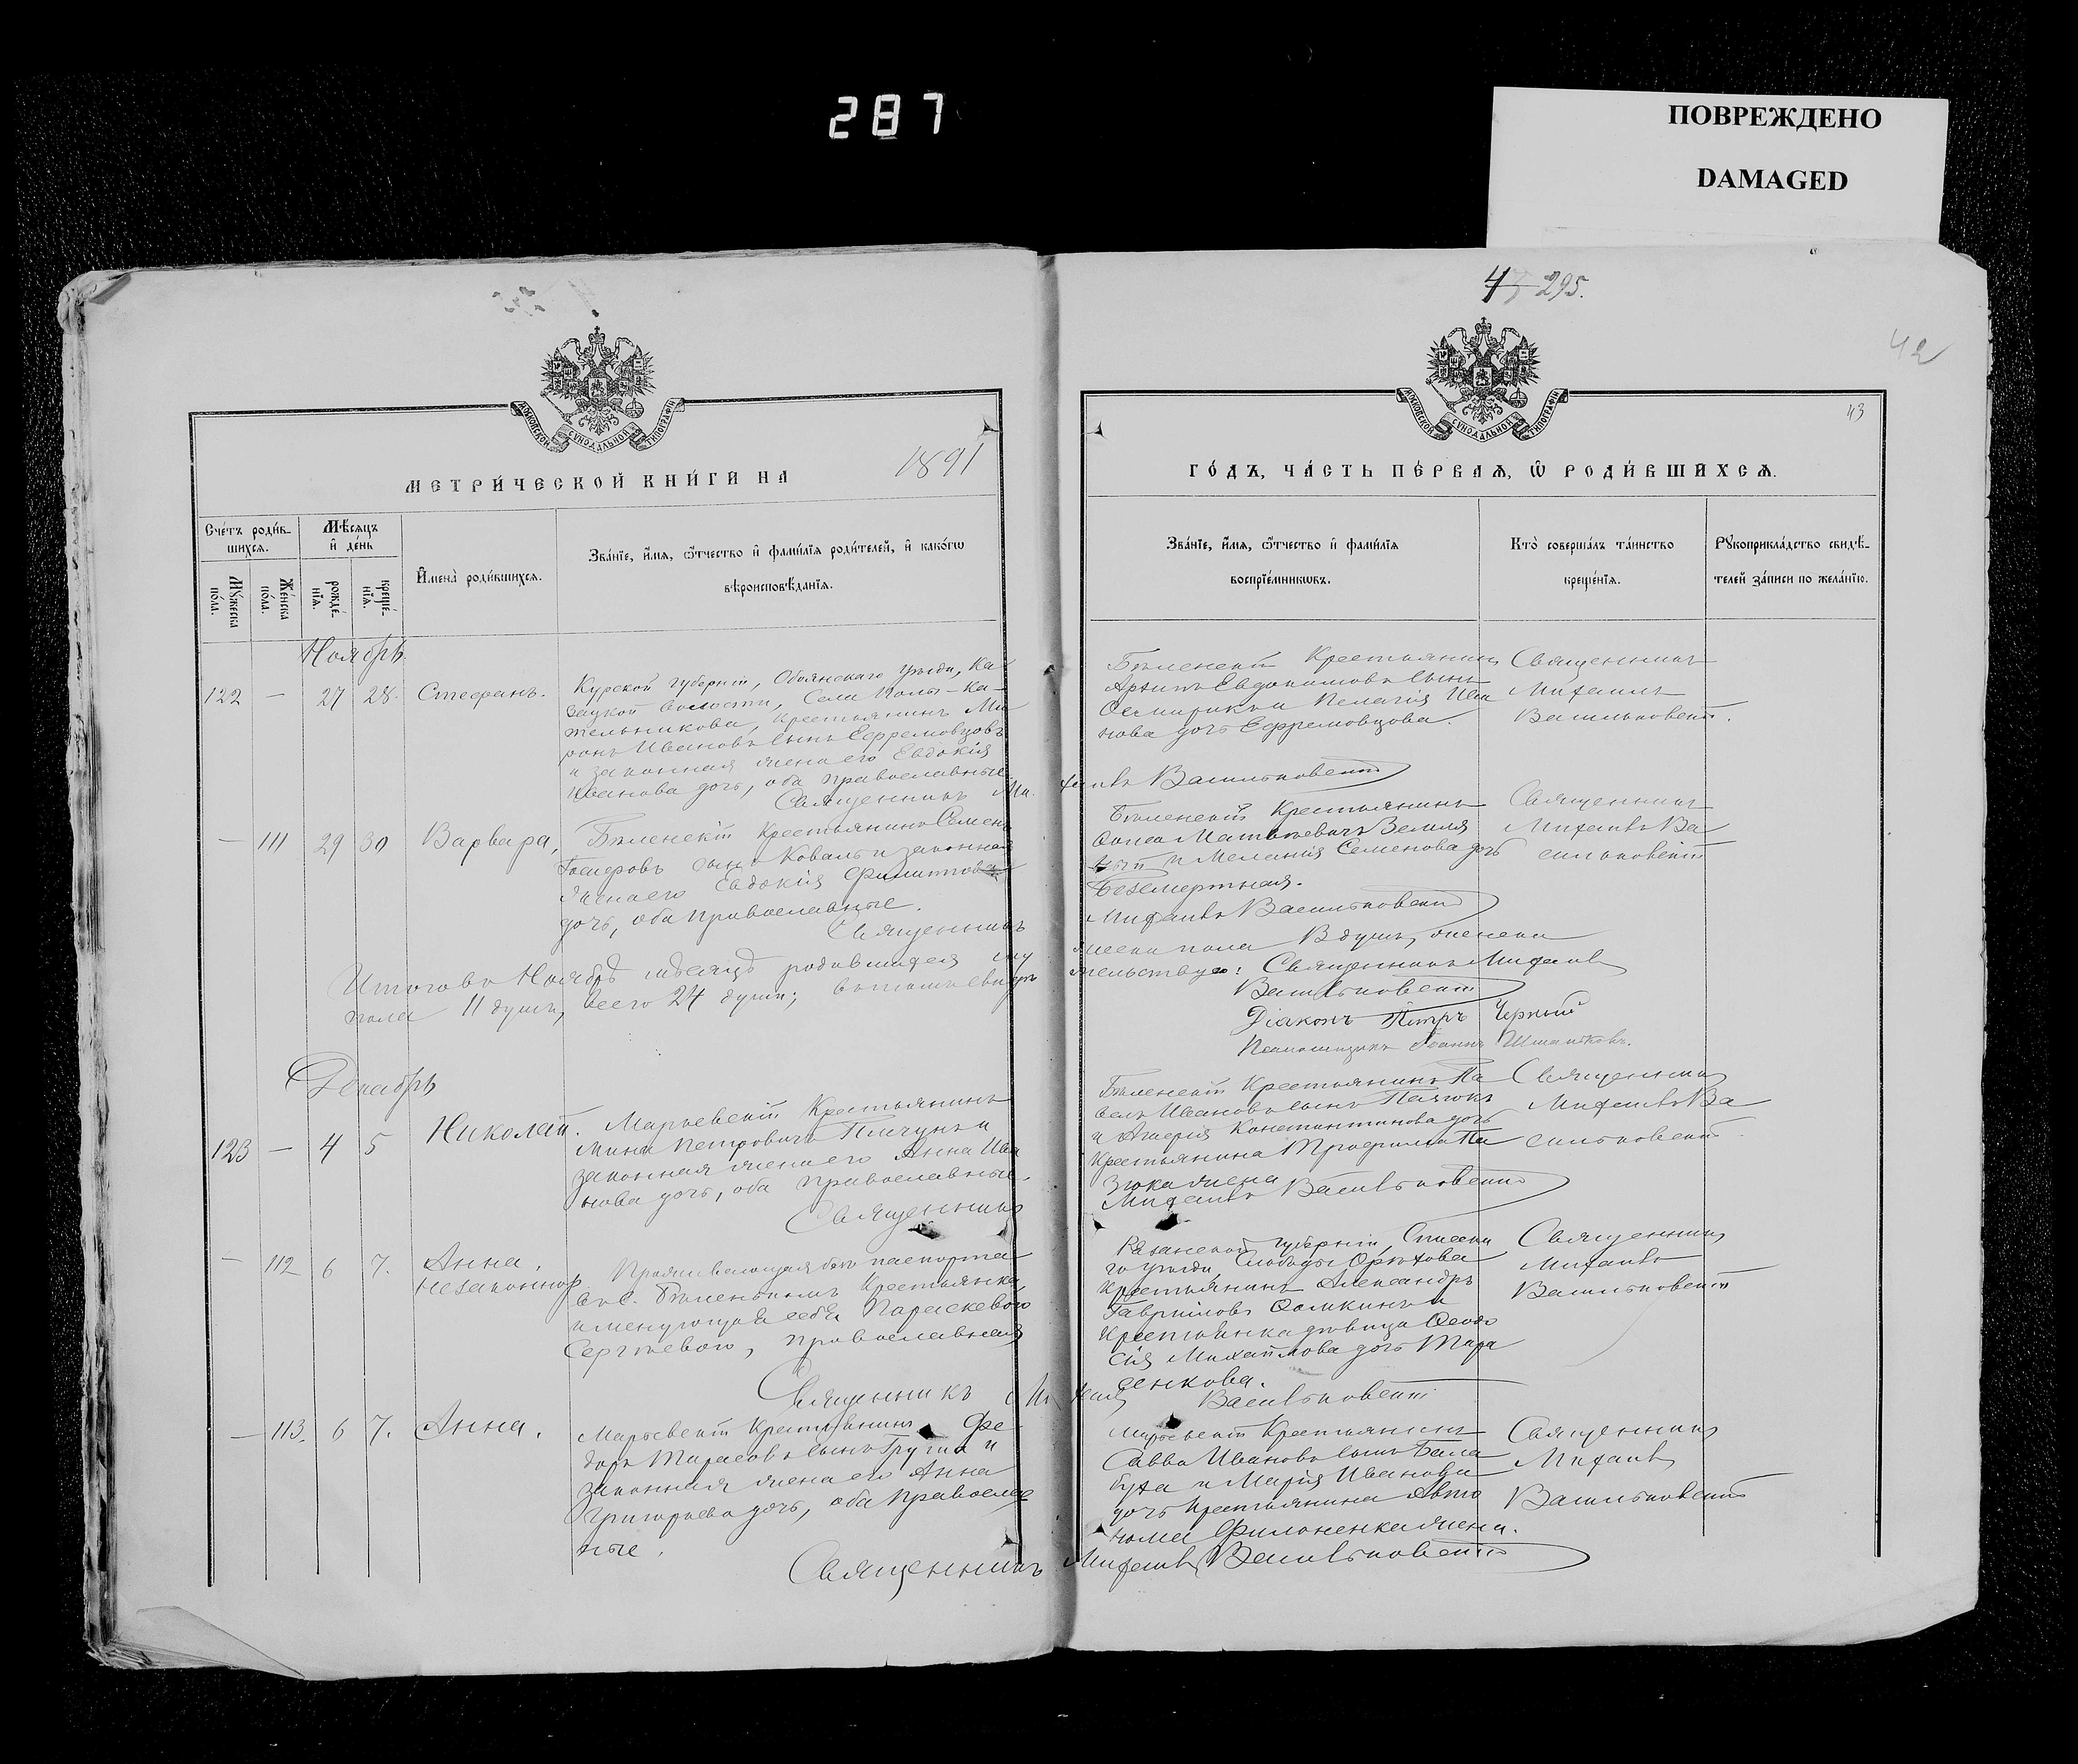 287
ПОВРЕЖДЕНО
DAMAGED
45 295.
42
43
МОСКОВСКОЙ СѴНОДАЛЬНОЙ ТИПОГРАФІИ
МОСКОВСКОЙ СѴНОДАЛЬНОЙ ТИПОГРАФІИ
МЕТРИ́ЧЕСКОЙ КНИ́ГИ НА 1891
ГО́ДЪ, ЧА́СТЬ ПЕ́РВАѦ, Ѽ РОДИ́ВШИХСѦ.
Сче́тъ роди́в-
шихсѧ.
Мѣ́сѧцъ
и҆ де́нь
Мꙋ́жеска по́ла.
Же́нска по́ла.
рожде́-
нїѧ.
креще́-
нїѧ.
И҆мена̀ роди́вшихсѧ.
Зва́нїе, и҆́мѧ, ѻ҆́тчество и҆ фами́лїѧ роди́телей, и҆ како́гѡ
вѣроисповѣ́данїѧ.
Зва́нїе, и҆́мѧ, ѻ҆́тчество и҆ фами́лїѧ
воспрїе́мникѡвъ.
Кто̀ соверша́лъ та́инство
креще́нїѧ.
Рꙋкоприкла́дство свидѣ́-
телей за́писи по жела́нїю.
Ноябрь
122 — 27 28. Стефанъ.
Курской губерніи, Обоянскаго уѣзда, Ка-
зацкой волости, Села
крестьянинъ Ми
ронъ Ивановъ сынъ Ефремовцовъ
и законная жена его Евдокія
Иванова дочь, оба православные.
Священникъ Ми
хаилъ Васильковскій
Бѣленскій Крестьянинъ
Архипъ Евдокимовъ сынъ
и Пелагія Ива
нова дочь Ефремовцова.
Священникъ
Михаилъ
Васильковскій.
— 111 29 30 Варвара,
Бѣленскій Крестьянинъ Семенъ
сынъ Коваль и законная
жена его Евдокія Филиппова
дочь, оба православные.
Священникъ
Михаилъ Васильковскій
Бѣленскій Крестьянинъ
Матвѣевичъ
и Меланія Семенова дочь
Безсмертная.
Священникъ
Михаилъ Ва
сильковскій
Итого въ Ноябрѣ мѣсяцѣ родившихся му
жеска пола 13 душъ, женска
пола 11 душъ, всего 24 души; въ томъ свидѣ
тельствую: Священникъ Михаилъ
Васильковскій
Діаконъ Петръ Черный
Псаломщикъ Іоаннъ
Декабрь
123 — 4 5 Николай.
Марьевскій Крестьянинъ
Мина Петровичъ и
законная жена его Анна Ива
нова дочь, оба православные.
Священникъ
Михаилъ Васильковскій
Бѣленскій Крестьянинъ Па
велъ Ивановъ сынъ
и Константинова дочь
Крестьянина Трофима Па
зюка жена
Священникъ
Михаилъ Ва
сильковскій
— 112 6 7. Анна,
незаконнор.
Проживающая безъ паспорта
въ с. Бѣленькомъ Крестьянка,
именующая себя Параскевою
Сергѣевою, православная
Священникъ Михаилъ Васильковскій
Рязанской губерніи, Спасска
го уѣзда, Слободы Орѣхова
крестьянинъ Александръ
Гавріиловъ Сомкинъ и
Крестьянка дѣвица Ѳеодо
сія Михайлова дочь Тара
сенкова.
Священникъ
Михаилъ
Васильковскій
— 113. 6 7. Анна.
Марьевскій Крестьянинъ Фе
доръ Тарасовъ сынъ и
законная жена его Анна
Григорьева дочь, оба православ
ные.
Священникъ Михаилъ Васильковскій
Марьевскій Крестьянинъ
Савва Ивановъ сынъ Бала
буха и Марія Иванова
дочь Крестьянина Авто
нома Филоненка жена.
Священникъ
Михаилъ
Васильковскій